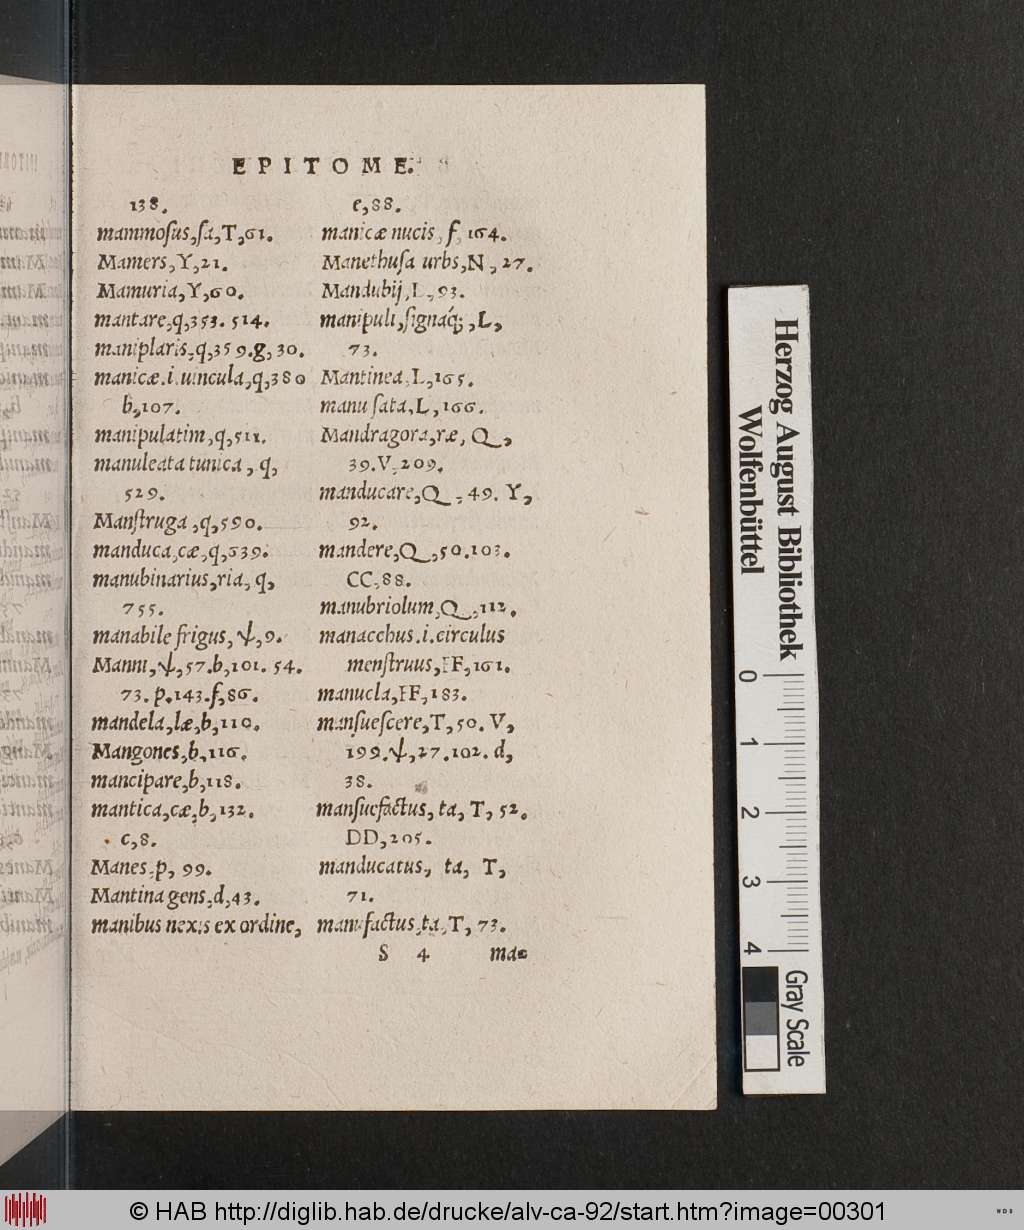 EPITOME.
138.
mammoſus,ſa,T,61.
Mamers,Y,21.
Mamuria,Y,60.
mantare,q,353. 514.
maniplaris,q,359.g,30.
manicæ.i.uincula,q,380
b,107.
manipulatim,q,511.
manuleata tunica, q,
529.
Manſtruga,q,590.
manduca,cæ,q,639.
manubinarius,ria, q,
755.
manabile frigus, ψ,9.
Manni,ψ,57.b,101. 54.
73. p.143.f,86.
mandela,læ,b,110.
Mangones,b,116.
mancipare,b,118.
mantica,cæ,b,132.
c,8.
Manes,p, 99.
Mantina gens,d,43.
manibus nexis ex ordine,
e,88.
manicæ nucis, f, 164.
Manethuſa urbs,N, 27.
Mandubij,L,93.
manipuli,ſignaq́;,L,
73.
Mantinea,L,165.
manu ſata,L,166.
Mandragora,ræ, Q,
39.V,209.
manducare,Q, 49. Y,
92.
mandere,Q,50.103.
CC,88.
manubriolum,Q,112.
manacchus.i.circulus
menſtruus,FF,161.
manucla,FF,183.
manſueſcere,T,50. V,
199.ψ,27.102. d,
38.
manſuefactus, ta, T, 52.
DD,205.
manducatus, ta, T,
71.
manufactus,ta,T, 73.
S 4 ma-
Herzog August Bibliothek
Wolfenbüttel
0 1 2 3 4
Gray Scale
© HAB http://diglib.hab.de/drucke/alv-ca-92/start.htm?image=00301